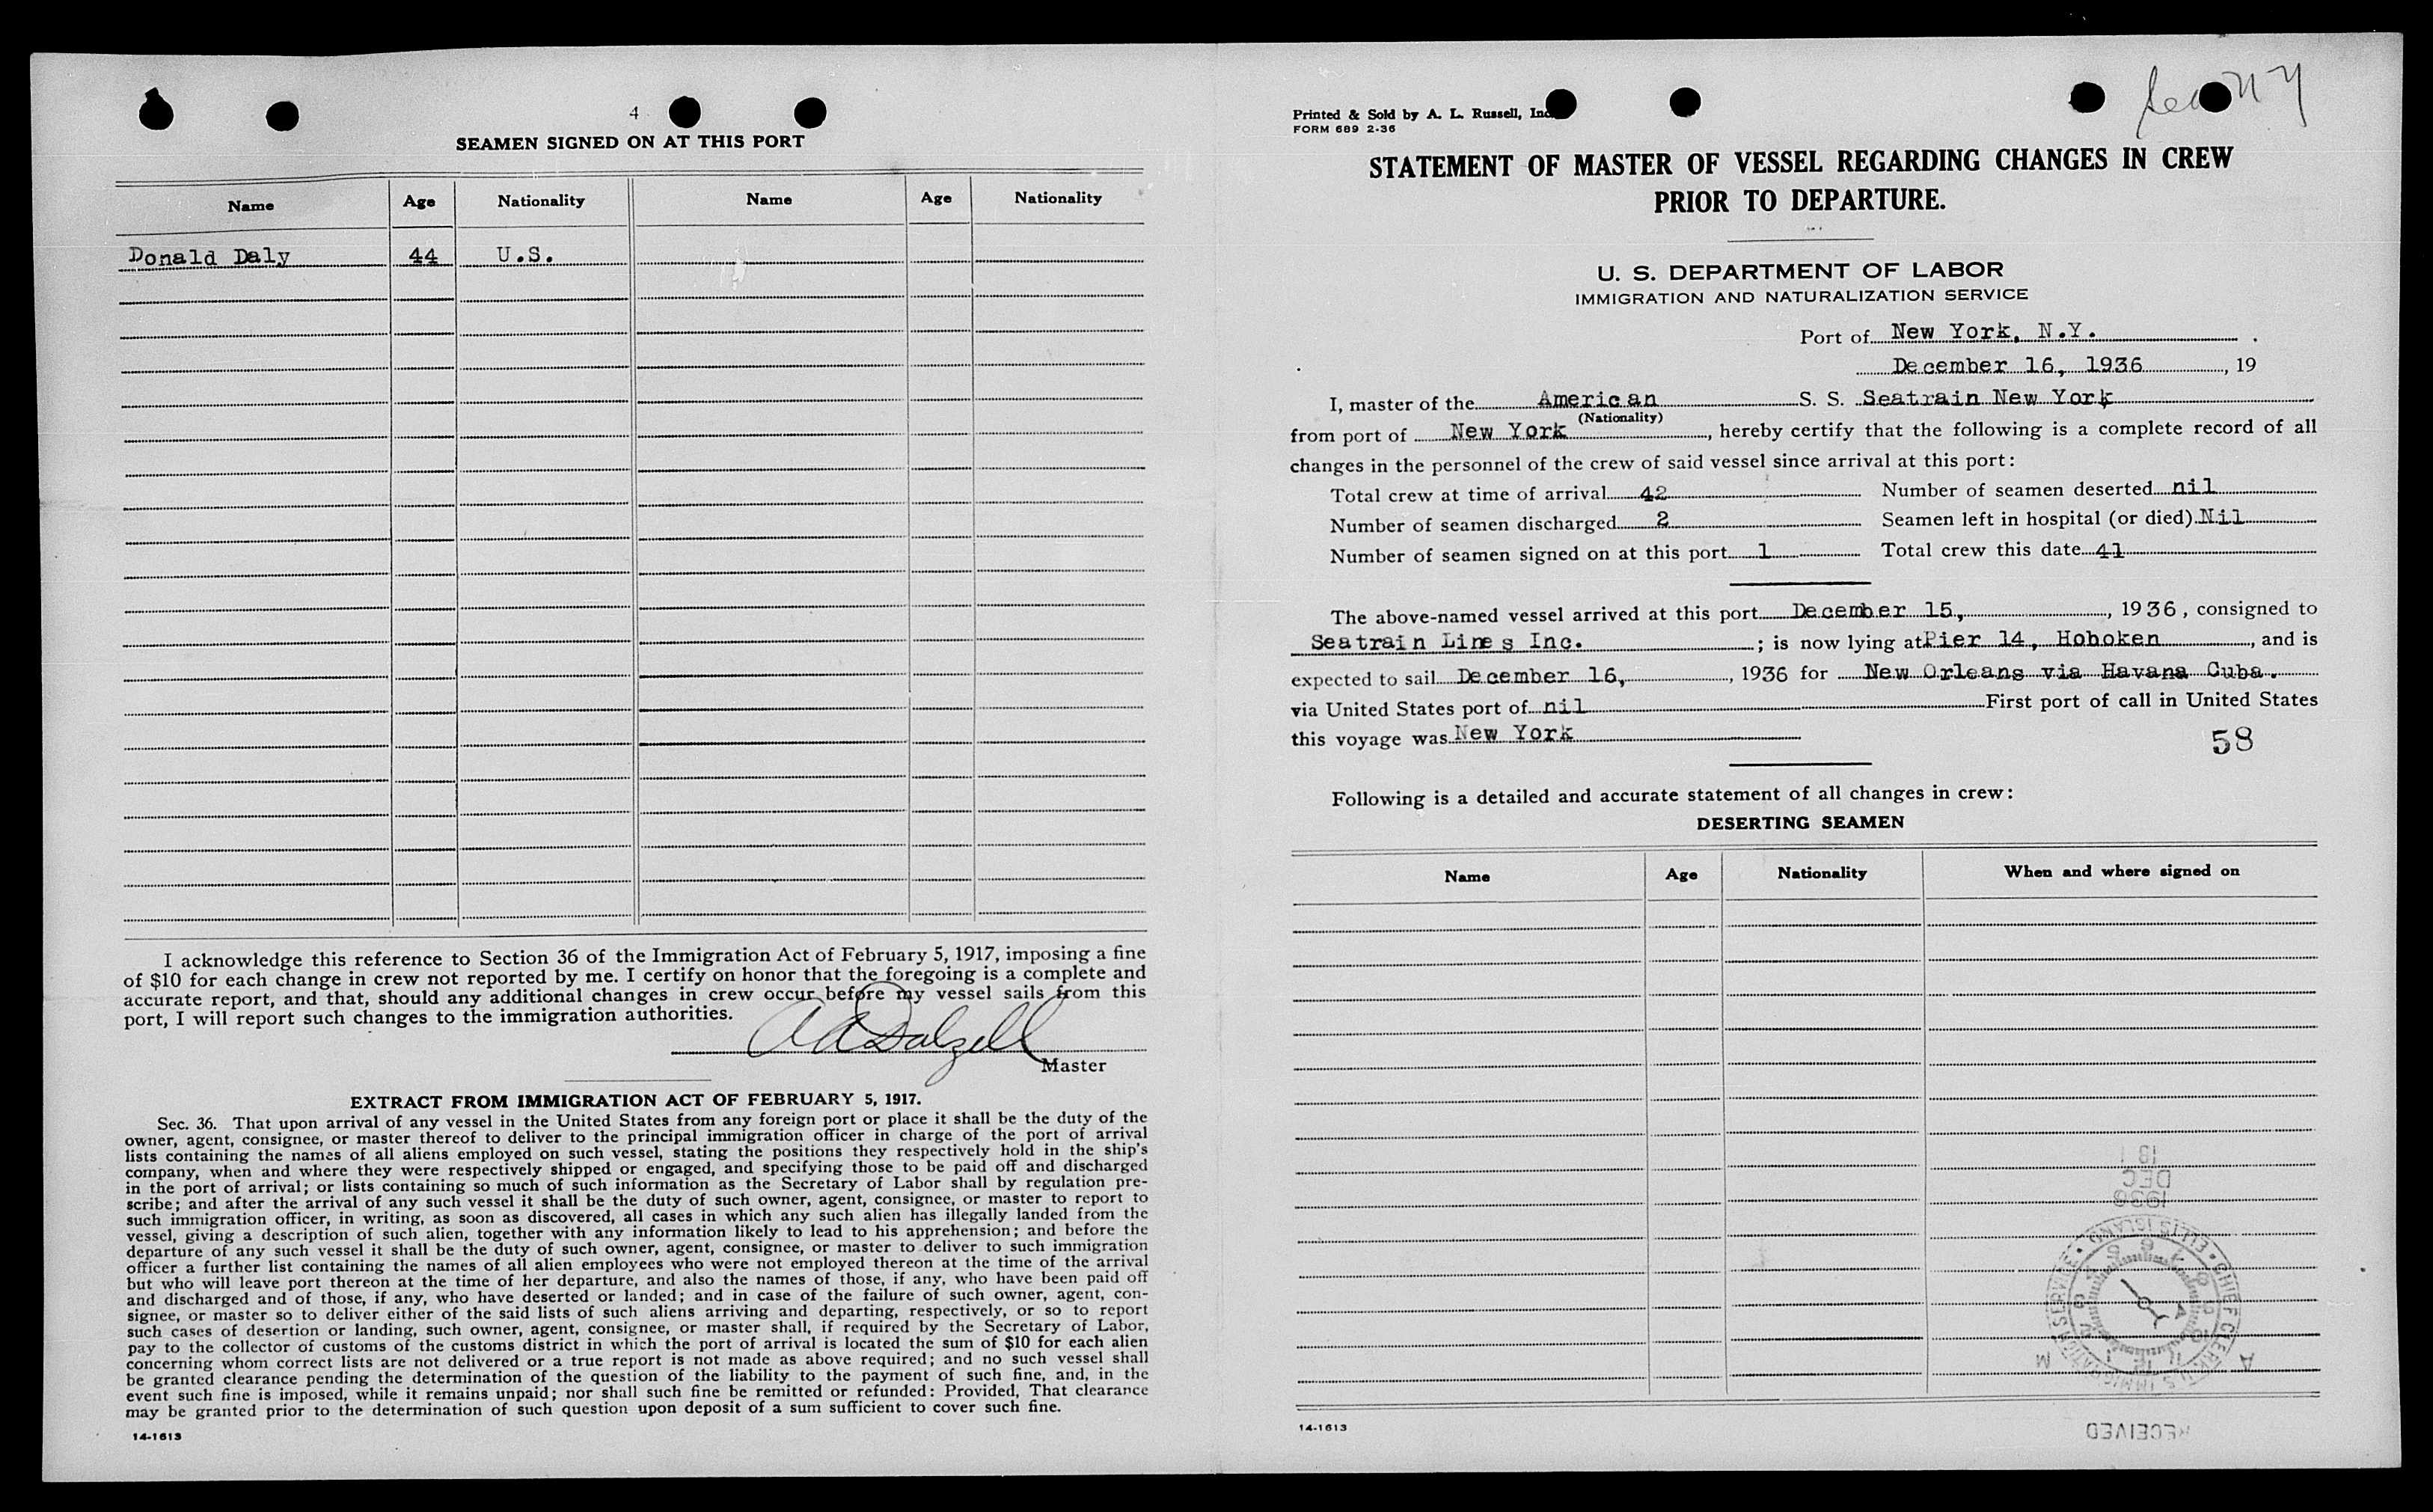 4
SEAMEN SIGNED ON AT THIS PORT
Name Age Nationality Name Age Nationality
Donald Daly 44 U.S.
I acknowledge this reference to Section 36 of the Immigration Act of February 5, 1917, imposing a fine
of $10 for each change in crew not reported by me. I certify on honor that the foregoing is a complete and
accurate report, and that, should any additional changes in crew occur before my vessel sails from this
port, I will report such changes to the immigration authorities.
A A Dalzell
Master
EXTRACT FROM IMMIGRATION ACT OF FEBRUARY 5, 1917.
Sec. 36. That upon arrival of any vessel in the United States from any foreign port or place it shall be the duty of the
owner, agent, consignee, or master thereof to deliver to the principal immigration officer in charge of the port of arrival
lists containing the names of all aliens employed on such vessel, stating the positions they respectively hold in the ship's
company, when and where they were respectively shipped or engaged, and specifying those to be paid off and discharged
in the port of arrival; or lists containing so much of such information as the Secretary of Labor shall by regulation pre-
scribe; and after the arrival of any such vessel it shall be the duty of such owner, agent, consignee, or master to report to
such immigration officer, in writing, as soon as discovered, all cases in which any such alien has illegally landed from the
vessel, giving a description of such alien, together with any information likely to lead to his apprehension; and before the
departure of any such vessel it shall be the duty of such owner, agent, consignee, or master to deliver to such immigration
officer a further list containing the names of all alien employees who were not employed thereon at the time of the arrival
but who will leave port thereon at the time of her departure, and also the names of those, if any, who have been paid off
and discharged and of those, if any, who have deserted or landed; and in case of the failure of such owner, agent, con-
signee, or master so to deliver either of the said lists of such aliens arriving and departing, respectively, or so to report
such cases of desertion or landing, such owner, agent, consignee, or master shall, if required by the Secretary of Labor,
pay to the collector of customs of the customs district in which the port of arrival is located the sum of $10 for each alien
concerning whom correct lists are not delivered or a true report is not made as above required; and no such vessel shall
be granted clearance pending the determination of the question of the liability to the payment of such fine, and, in the
event such fine is imposed, while it remains unpaid; nor shall such fine be remitted or refunded: Provided, That clearance
may be granted prior to the determination of such question upon deposit of a sum sufficient to cover such fine.
14-1613
Printed & Sold by A. L. Russell, Inc
FORM 689 2-36
STATEMENT OF MASTER OF VESSEL REGARDING CHANGES IN CREW
PRIOR TO DEPARTURE.
U. S. DEPARTMENT OF LABOR
IMMIGRATION AND NATURALIZATION SERVICE
Port of New York, N.Y.
December 16, 1936, 19
I, master of the American S. S. Seatrain New York
(Nationality)
from port of New York, hereby certify that the following is a complete record of all
changes in the personnel of the crew of said vessel since arrival at this port:
Total crew at time of arrival 42 Number of seamen deserted nil
Number of seamen discharged 2 Seamen left in hospital (or died) Nil
Number of seamen signed on at this port 1 Total crew this date 41
The above-named vessel arrived at this port December 15, , 1936, consigned to
Seatrain Lines Inc. ; is now lying at Pier 14, Hoboken , and is
expected to sail December 16, , 1936 for New Orleans via Havana Cuba.
via United States port of nil First port of call in United States
this voyage was New York
58
Following is a detailed and accurate statement of all changes in crew:
DESERTING SEAMEN
Name Age Nationality When and where signed on
DEC
1936
ELLIS ISLAND
CHIEF CLERK
U.S. IMMIGRATION SERVICE
A M
RECEIVED
14-1613